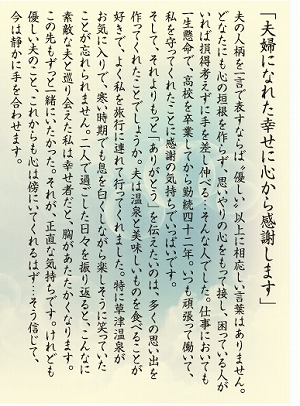 「夫婦になれた幸せに心から感謝します」
夫の人柄を一言で表すならば、“優しい”以上に相応しい言葉はありません。
どなたにも心の垣根を作らず、思いやりの心をもって接し、困っている人が
いれば損得考えずに手を差し伸べる…そんな人でした。仕事においても
一生懸命で、高校を卒業してから勤続四十二年。いつも頑張って働いて、
私を守ってくれたことに感謝の気持ちでいっぱいです。
そして、それよりもっと「ありがとう」を伝えたいのは、多くの思い出を
作ってくれたことでしょうか。夫は温泉と美味しいものを食べることが
好きで、よく私を旅行に連れて行ってくれました。特に草津温泉が
お気に入りで、寒い時期でも息を白くしながら楽しそうに笑っていた
ことが忘れられません。二人で過ごした日々を振り返ると、こんなに
素敵な夫と巡り会えた私は幸せ者だと、胸があたたかくなります。
この先もずっと一緒にいたかった。それが、正直な気持ちです。けれども
優しい夫のこと、これからも心は傍にいてくれるはず…そう信じて、
今は静かに手を合わせます。